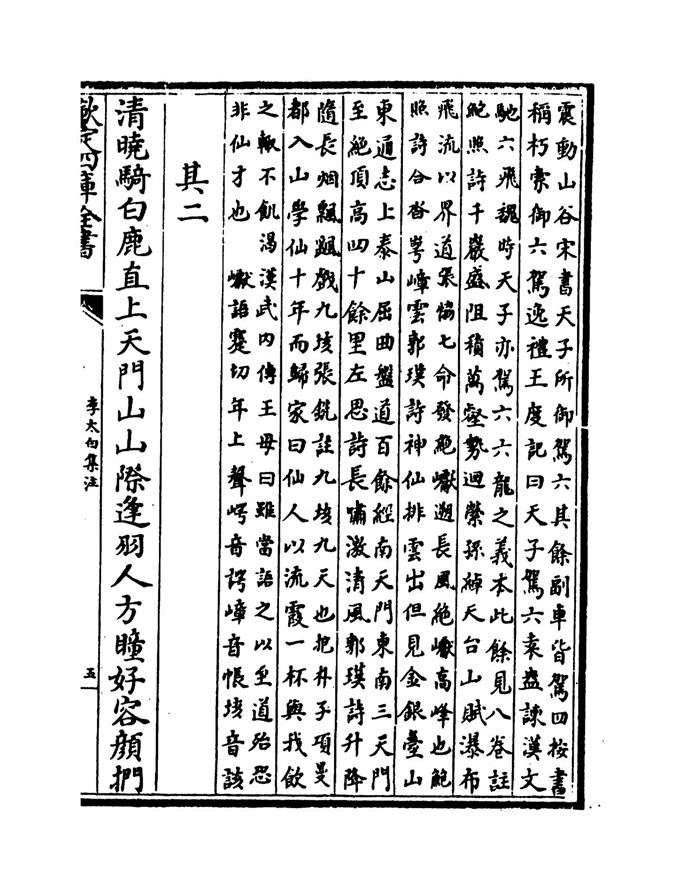 震動山谷宋書天子所御駕六其餘副車皆駕四按書
稱朽索御六駕逸禮王度記曰天子駕六袁盎諫漢文
馳六飛魏時天子亦駕六六龍之義本此餘見八卷註
鮑照詩千巖盛阻積萬壑勢迴縈孫綽天台山賦瀑布
飛流以界道張協七命發絶巘遡長風絶巘高峰也鮑
照詩合沓崿嶂雲郭璞詩神仙排雲出但見金銀臺山
東通志上泰山屈曲盤道百餘經南天門東南三天門
至絶頂高四十餘里左思詩長嘯激清風郭璞詩升降
隨長烟飄颻戲九垓張銑註九垓九天也抱朴子項曼
都入山學仙十年而歸家曰仙人以流霞一杯與我飲
之輒不飢渴漢武内傳王母曰雖當語之以至道殆恐
非仙才也　巘語蹇切年上聲崿音諤嶂音帳垓音該
其二
清曉騎白鹿直上天門山山際逢羽人方瞳好容顔捫
欽定四庫全書
李太白集注
五